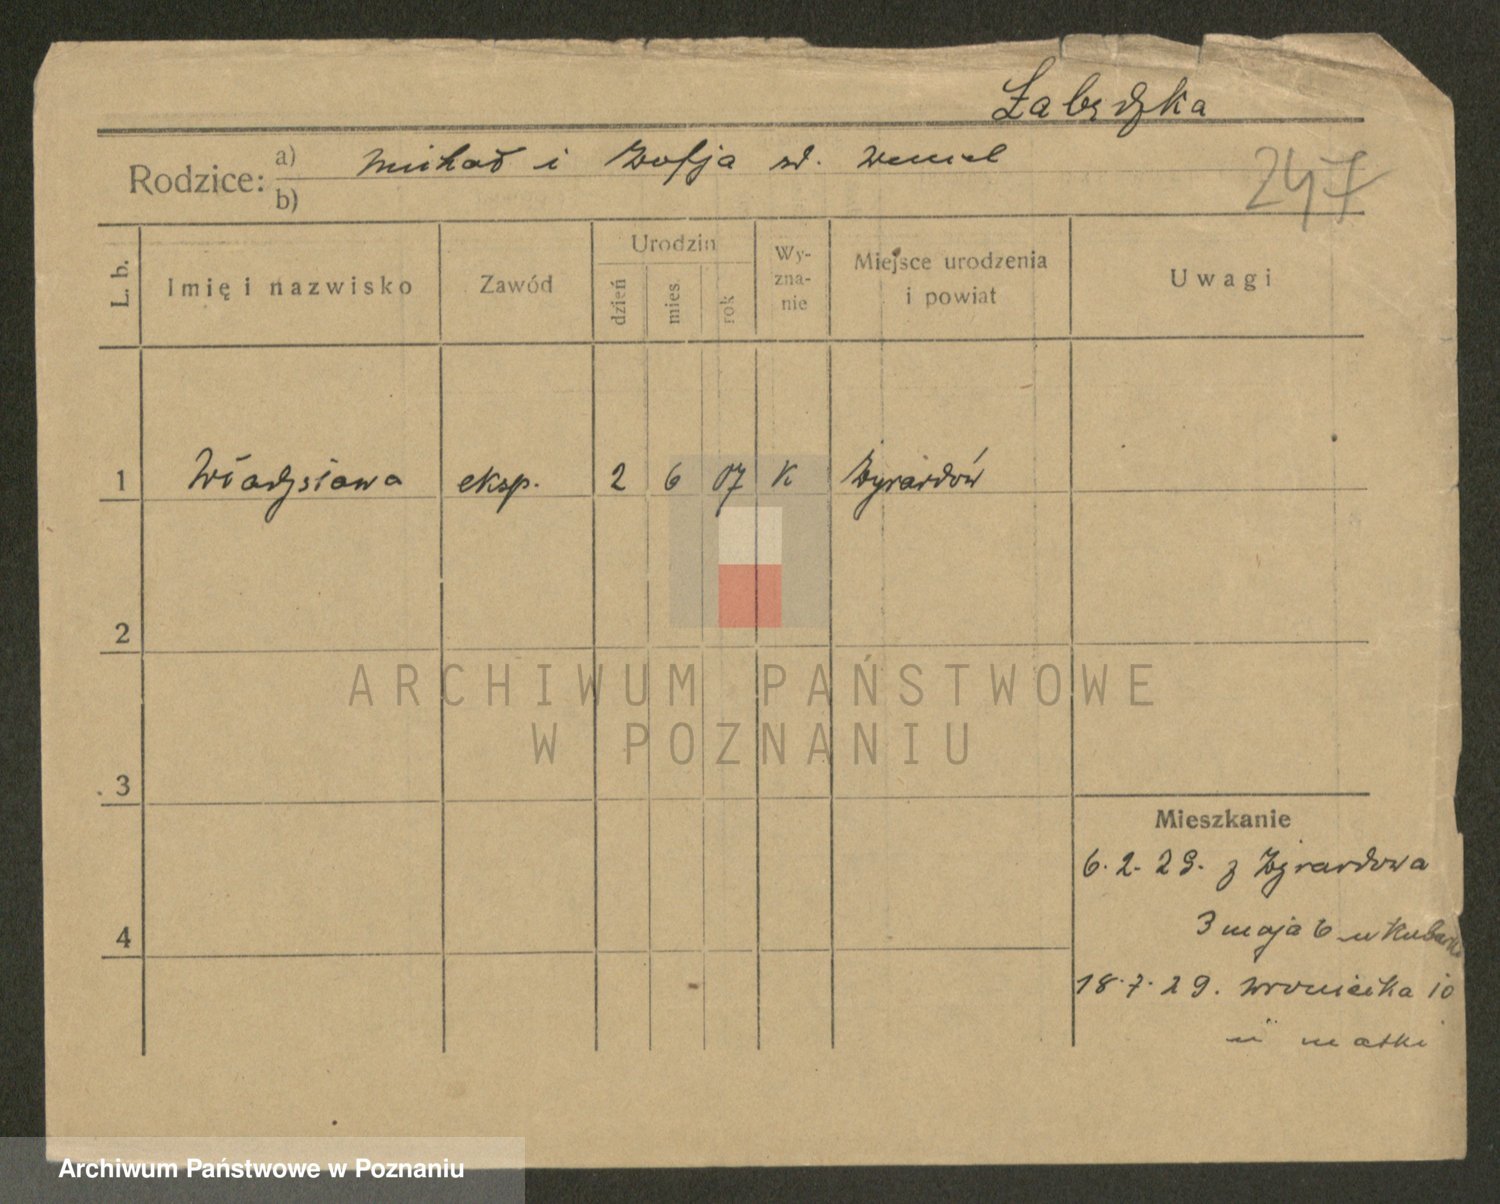 Łabędzka
Rodzice: a) Michał i Zofja zd. Wencel
b)
247
L. b.
Imię i nazwisko
Zawód
Urodzin
dzień
mies.
rok
Wy-
zna-
nie
Miejsce urodzenia
i powiat
Uwagi
1 Władysława eksp. 2 6 07 K Żyrardów
2
3
4
ARCHIWUM PAŃSTWOWE
W POZNANIU
Mieszkanie
6.2.29. z Żyrardowa
3 maja 6 u
18.7.29. Wroniecka 10
u matki
Archiwum Państwowe w Poznaniu